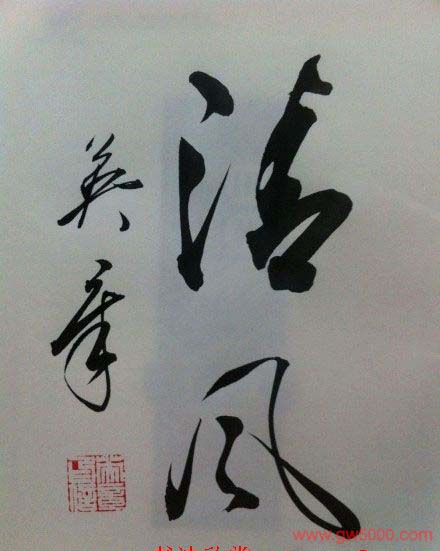 清风
英章
www.gw6000.com